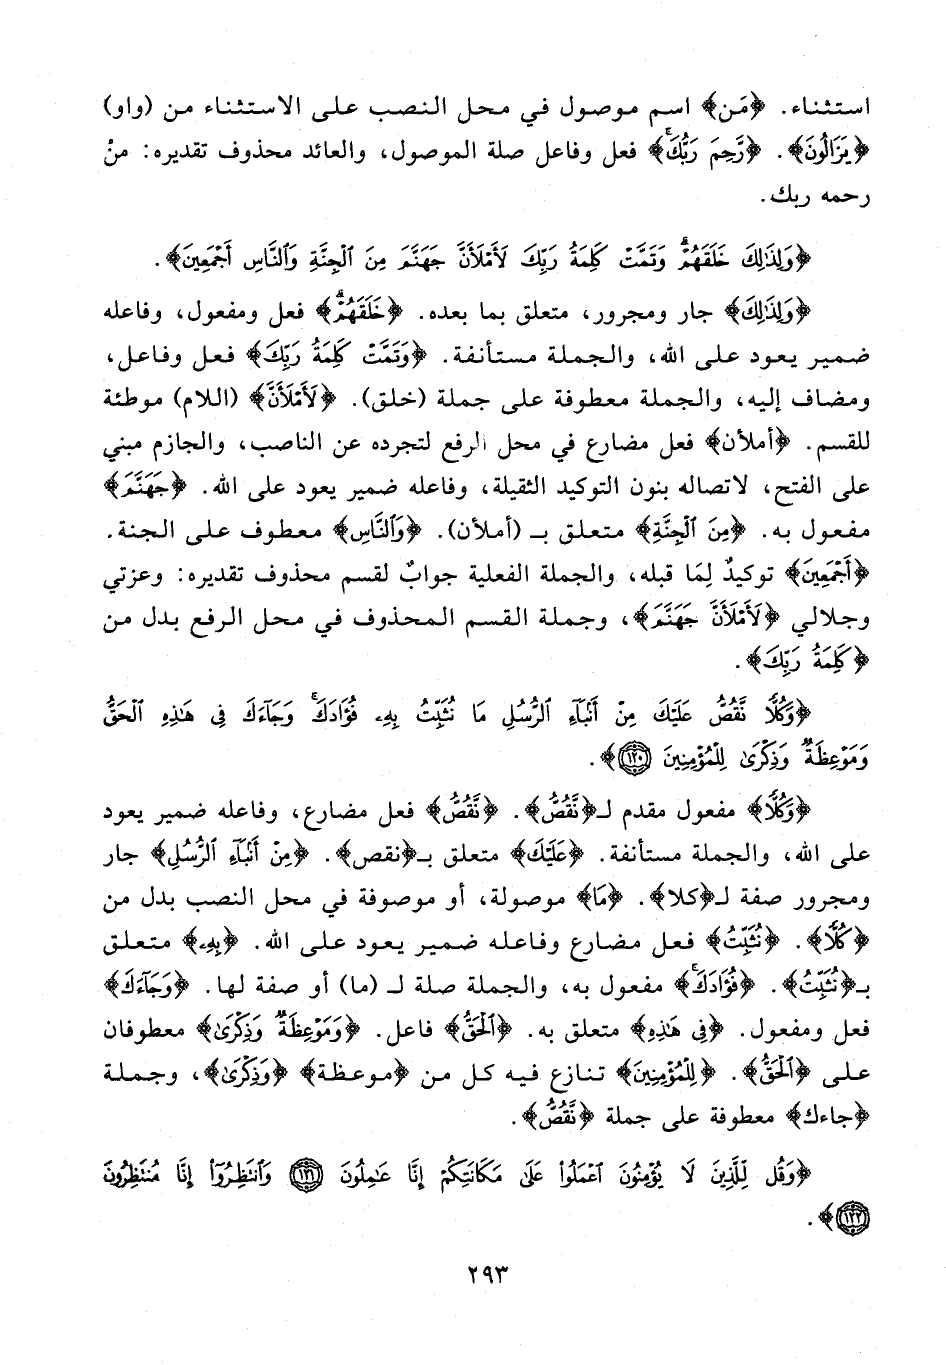 استثناء. ﴿مَن﴾ اسم موصول في محل النصب على الاستثناء من (واو)
﴿يَزَالُونَ﴾. ﴿رَّحِمَ رَبُّكَۚ﴾ فعل وفاعل صلة الموصول، والعائد محذوف تقديره: منْ
رحمه ربك.
﴿وَلِذَٰلِكَ خَلَقَهُمْۗ وَتَمَّتْ كَلِمَةُ رَبِّكَ لَأَمْلَأَنَّ جَهَنَّمَ مِنَ ٱلْجِنَّةِ وَٱلنَّاسِ أَجْمَعِينَ﴾.
﴿وَلِذَٰلِكَ﴾ جار ومجرور، متعلق بما بعده. ﴿خَلَقَهُمْۗ﴾ فعل ومفعول، وفاعله
ضمير يعود على الله، والجملة مستأنفة. ﴿وَتَمَّتْ كَلِمَةُ رَبِّكَ﴾ فعل وفاعل،
ومضاف إليه، والجملة معطوفة على جملة (خلق). ﴿لَأَمْلَأَنَّ﴾ (اللام) موطئة
للقسم. ﴿أملأن﴾ فعل مضارع في محل الرفع لتجرده عن الناصب، والجازم مبني
على الفتح، لاتصاله بنون التوكيد الثقيلة، وفاعله ضمير يعود على الله. ﴿جَهَنَّمَ﴾
مفعول به. ﴿مِنَ ٱلْجِنَّةِ﴾ متعلق بـ (أملأن). ﴿وَٱلنَّاسِ﴾ معطوف على الجنة.
﴿أَجْمَعِينَ﴾ توكيدٌ لِمَا قبله، والجملة الفعلية جوابٌ لقسم محذوف تقديره: وعزتي
وجلالي ﴿لَأَمْلَأَنَّ جَهَنَّمَ﴾، وجملة القسم المحذوف في محل الرفع بدل من
﴿كَلِمَةُ رَبِّكَ﴾.
﴿وَكُلًّا نَّقُصُّ عَلَيْكَ مِنْ أَنۢبَآءِ ٱلرُّسُلِ مَا نُثَبِّتُ بِهِۦ فُؤَادَكَۚ وَجَآءَكَ فِى هَٰذِهِ ٱلْحَقُّ
وَمَوْعِظَةٌ وَذِكْرَىٰ لِلْمُؤْمِنِينَ ١٢٠﴾.
﴿وَكُلًّا﴾ مفعول مقدم لـ﴿نَّقُصُّ﴾. ﴿نَّقُصُّ﴾ فعل مضارع، وفاعله ضمير يعود
على الله، والجملة مستأنفة. ﴿عَلَيْكَ﴾ متعلق بـ﴿نقص﴾. ﴿مِنْ أَنۢبَآءِ ٱلرُّسُلِ﴾ جار
ومجرور صفة لـ﴿كلا﴾. ﴿مَا﴾ موصولة، أو موصوفة في محل النصب بدل من
﴿كُلًّا﴾. ﴿نُثَبِّتُ﴾ فعل مضارع وفاعله ضمير يعود على الله. ﴿بِهِۦ﴾ متعلق
بـ﴿نُثَبِّتُ﴾. ﴿فُؤَادَكَۚ﴾ مفعول به، والجملة صلة لـ (ما) أو صفة لها. ﴿وَجَآءَكَ﴾
فعل ومفعول. ﴿فِى هَٰذِهِ﴾ متعلق به. ﴿ٱلْحَقُّ﴾ فاعل. ﴿وَمَوْعِظَةٌ وَذِكْرَىٰ﴾ معطوفان
على ﴿ٱلْحَقُّ﴾. ﴿لِلْمُؤْمِنِينَ﴾ تنازع فيه كل من ﴿موعظة﴾ ﴿وَذِكْرَىٰ﴾، وجملة
﴿جاءك﴾ معطوفة على جملة ﴿نَّقُصُّ﴾.
﴿وَقُل لِّلَّذِينَ لَا يُؤْمِنُونَ ٱعْمَلُوا۟ عَلَىٰ مَكَانَتِكُمْ إِنَّا عَٰمِلُونَ ١٢١ وَٱنتَظِرُوٓا۟ إِنَّا مُنتَظِرُونَ
١٢٢﴾.
٢٩٣